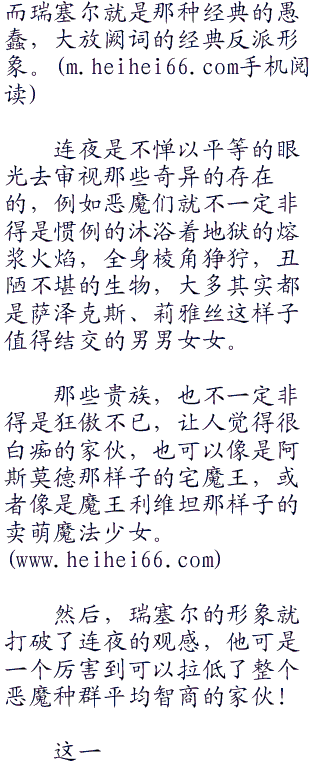 而瑞塞尔就是那种经典的愚
蠢，大放阙词的经典反派形
象。(m.heihei66.com手机阅
读)
连夜是不惮以平等的眼
光去审视那些奇异的存在
的，例如恶魔们就不一定非
得是惯例的沐浴着地狱的熔
浆火焰，全身棱角狰狞，丑
陋不堪的生物，大多其实都
是萨泽克斯、莉雅丝这样子
值得结交的男男女女。
那些贵族，也不一定非
得是狂傲不已，让人觉得很
白痴的家伙，也可以像是阿
斯莫德那样子的宅魔王，或
者像是魔王利维坦那样子的
卖萌魔法少女。
(www.heihei66.com)
然后，瑞塞尔的形象就
打破了连夜的观感，他可是
一个厉害到可以拉低了整个
恶魔种群平均智商的家伙！
这一